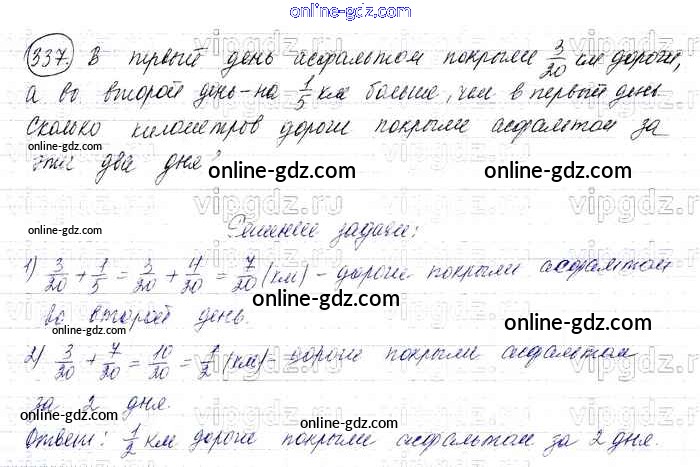 online-gdz.com
337. В первый день асфальтом покрыли 3/20 км дороги,
а во второй день - на 1/5 км больше, чем в первый день.
Сколько километров дороги покрыли асфальтом за
эти два дня?
vipgdz.com
online-gdz.com
online-gdz.com
online-gdz.com
Решение задачи:
1) 3/20 + 1/5 = 3/20 + 4/20 = 7/20 (км) - дороги покрыли асфальтом
во второй день.
online-gdz.com
online-gdz.com
online-gdz.com
2) 3/20 + 7/20 = 10/20 = 1/2 (км) - дороги покрыли асфальтом
за 2 дня.
online-gdz.com
online-gdz.com
online-gdz.com
Ответ: 1/2 км дороги покрыли асфальтом за 2 дня.